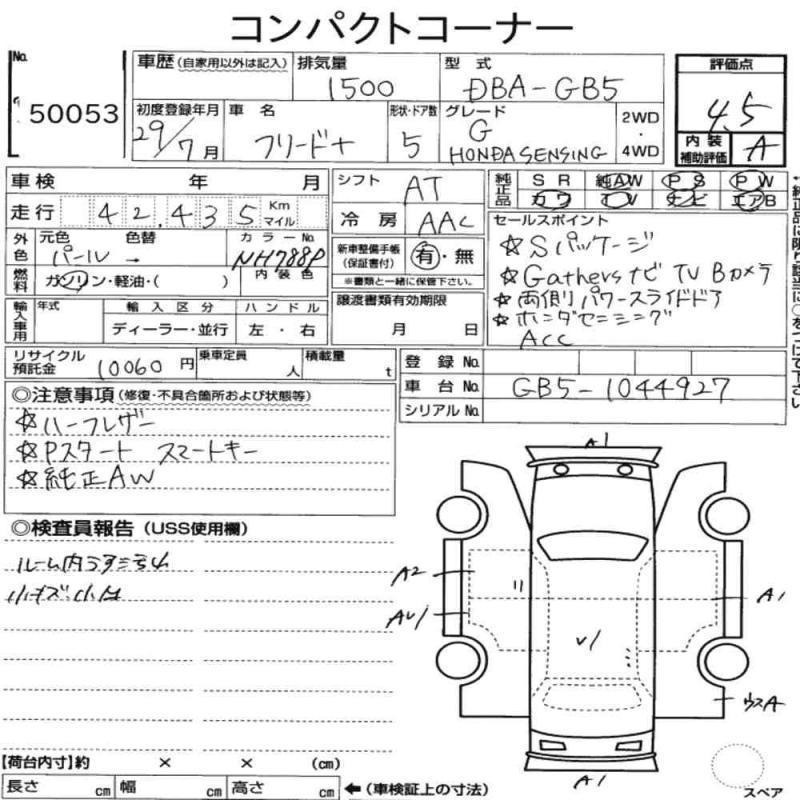 コンパクトコーナー
No.
50053
車歴(自家用以外は記入)
排気量
1500
型式
DBA-GB5
評価点
4.5
内装補助評価
A
初度登録年月
29/7月
車名
フリード+
形状・ドア数
5
グレード
G
HONDA SENSING
2WD
・
4WD
車検 年 月
シフト AT
純正品
SR 純AW PS PW
カワ TV ナビ エアB
走行 42,435 Km マイル
冷房 AAC
セールスポイント
☆Sパッケージ
☆Gathersナビ TV Bカメラ
☆両側パワースライドドア
☆ホンダセンシング
ACC
外色
元色 色替 カラーNo.
パール → NH788P
内装色
燃料
ガソリン・軽油・( )
新車整備手帳(保証書付)
有・無
※書類と一緒に保管下さい。
輸入車用
年式 輸入区分 ハンドル
ディーラー・並行 左・右
譲渡書類有効期限
月 日
リサイクル預託金 10060円
乗車定員 人
積載量 t
登録No.
車台No. GB5-1044927
シリアルNo.
◎注意事項(修復・不具合箇所および状態等)
☆ハーフレザー
☆Pスタート スマートキー
☆純正AW
◎検査員報告(USS使用欄)
小キズ小凹
A1
A2
A1
V1
ウスA
A1
スペア
【荷台内寸】約 × × (cm)
長さ cm 幅 cm 高さ cm ←(車検証上の寸法)